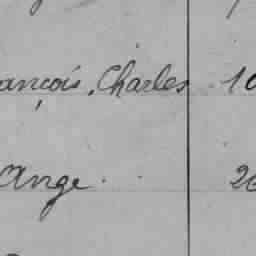 ançois, Charles 10
Ange 20